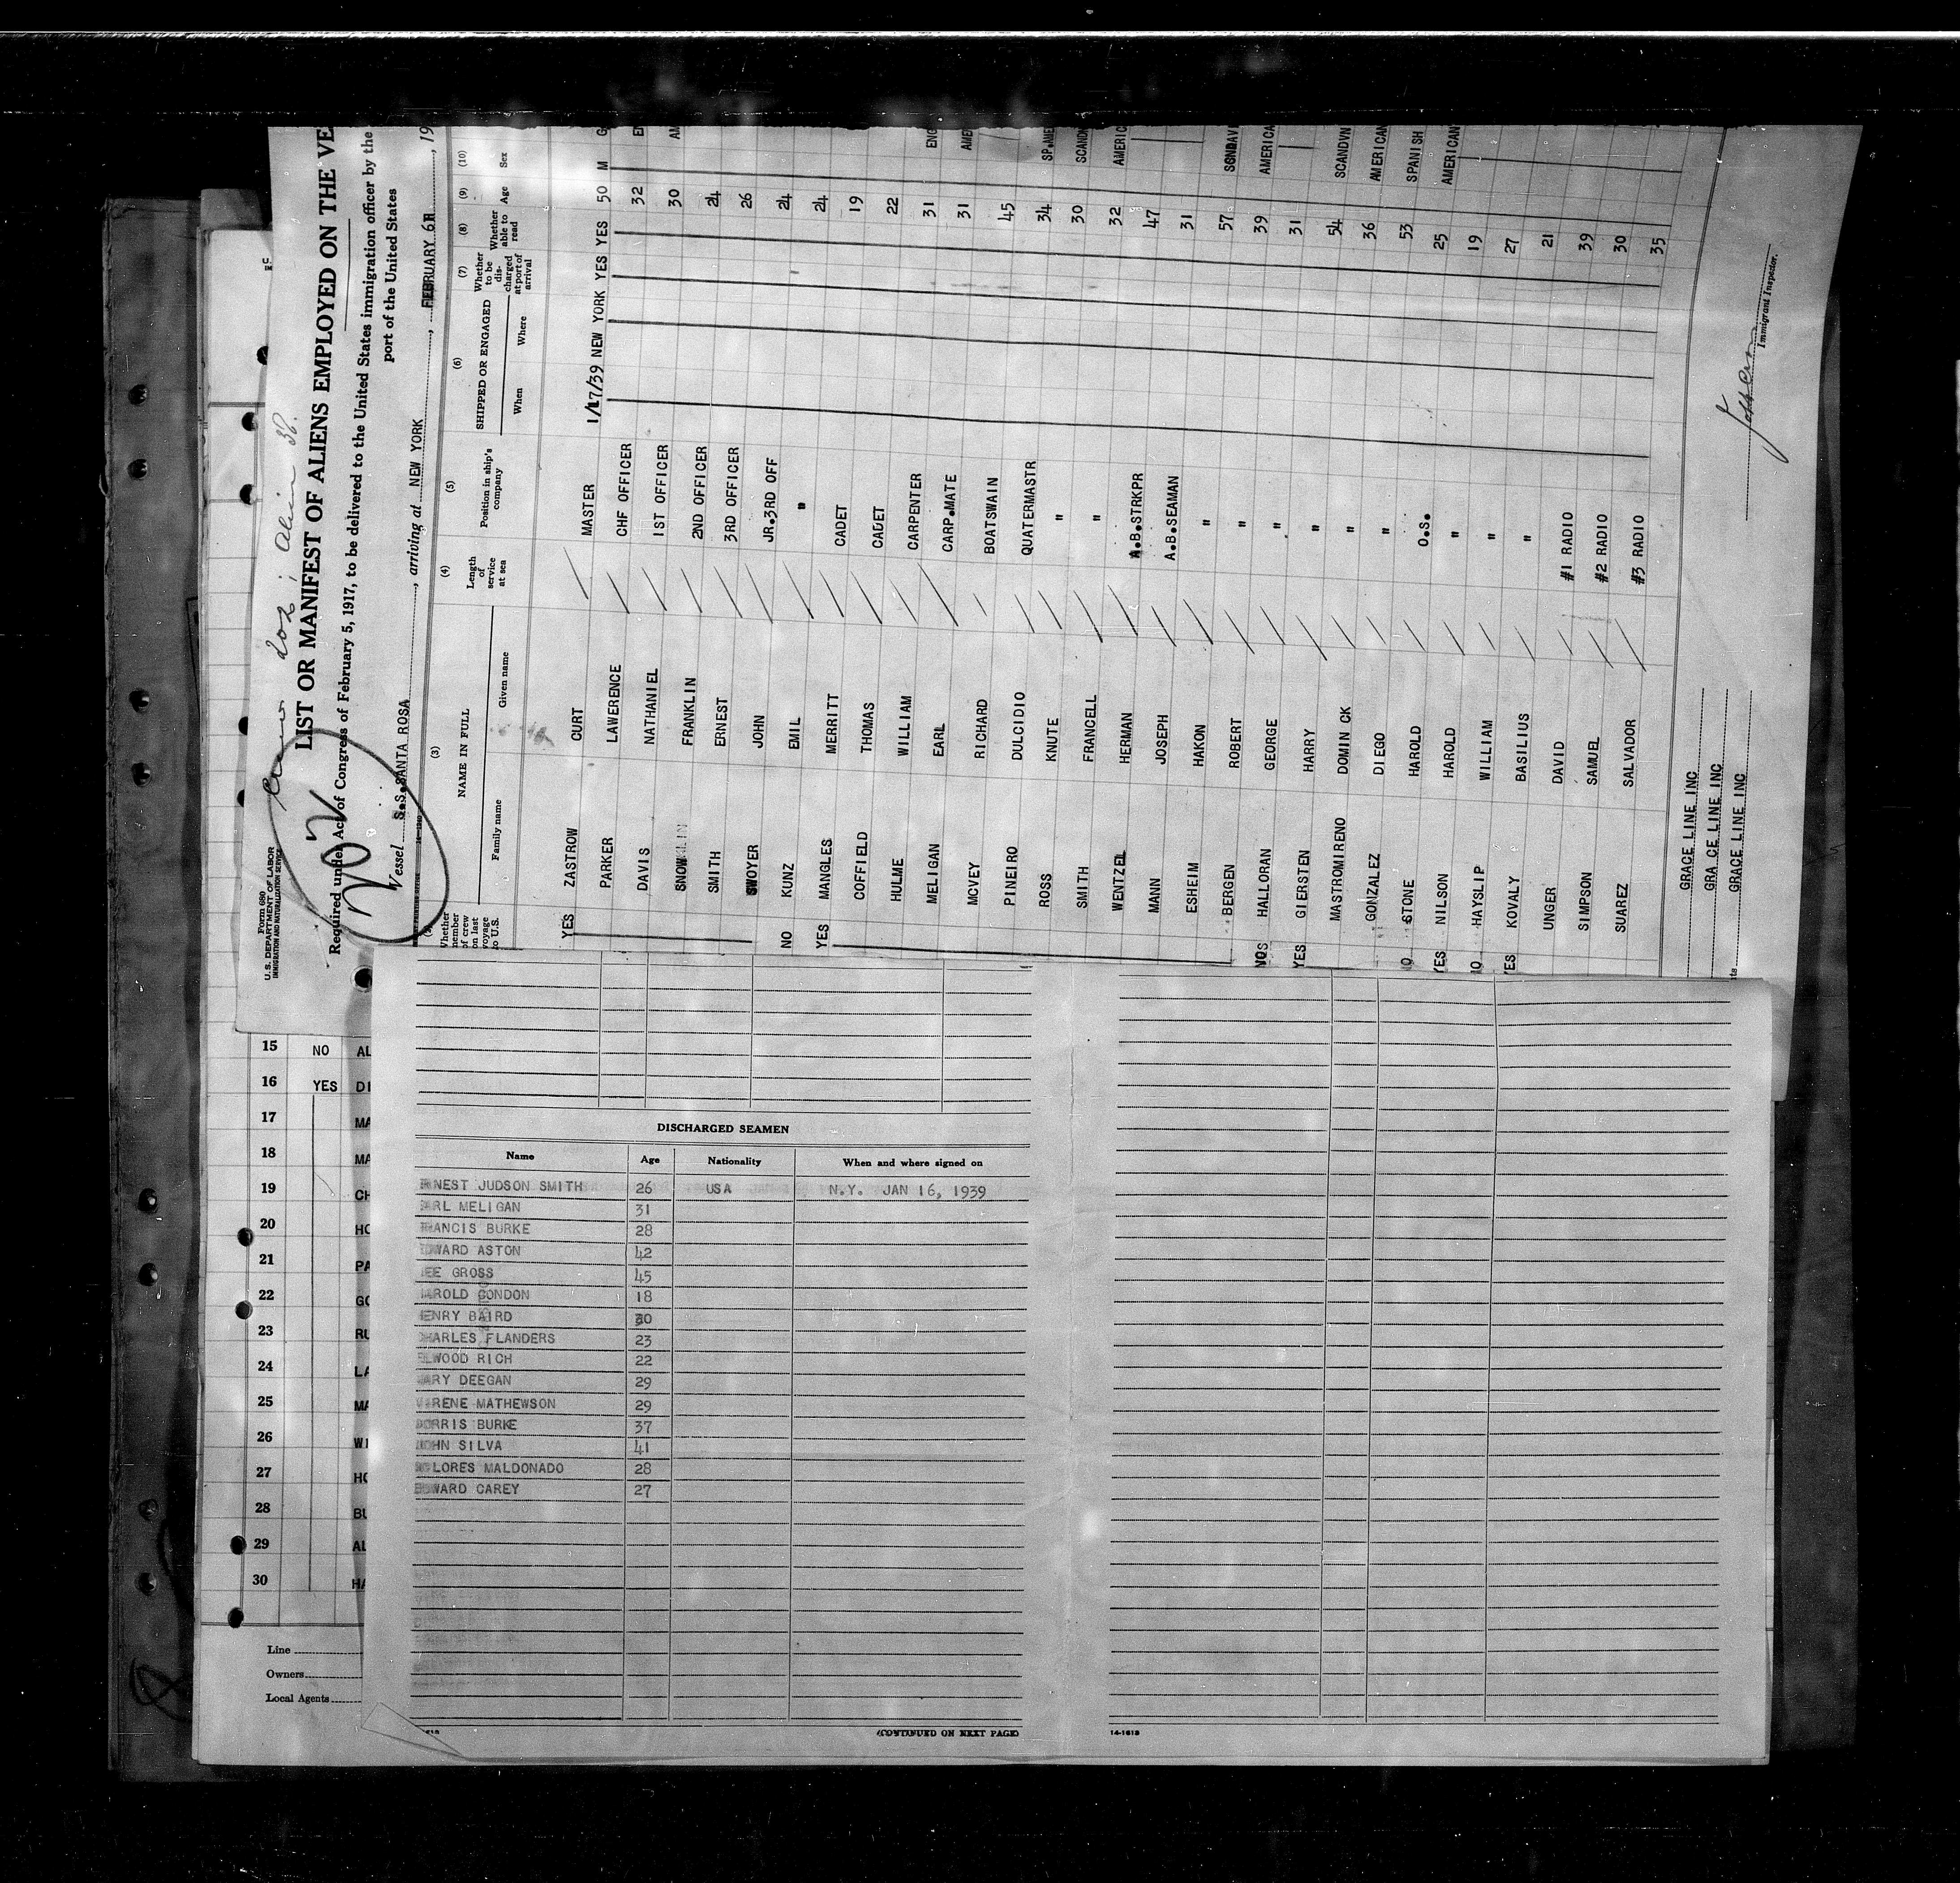 Form 680
U.S. DEPARTMENT OF LABOR
IMMIGRATION AND NATURALIZATION SERVICE
LIST OR MANIFEST OF ALIENS EMPLOYED ON THE VE
Required under Act of Congress of February 5, 1917, to be delivered to the United States immigration officer by the
port of the United States
Vessel S.S. SANTA ROSA, arriving at NEW YORK, FEBRUARY 6, 19
Whether member of crew on last voyage to U.S.
(3) NAME IN FULL
Family name Given name
(4) Length of service at sea
(5) Position in ship's company
(6) SHIPPED OR ENGAGED
When Where
(7) Whether to be discharged at port of arrival
(8) Whether able to read
(9) Age
(10) Sex
YES ZASTROW CURT MASTER 1/17/39 NEW YORK YES YES 50 M G
PARKER LAWERENCE CHF OFFICER 32 EN
DAVIS NATHANIEL 1ST OFFICER 30 AM
SNOW FRANKLIN 2ND OFFICER 24
SMITH ERNEST 3RD OFFICER 26
SWOYER JOHN JR.3RD OFF 24
NO KUNZ EMIL " 24
YES MANGLES MERRITT CADET 19
COFFIELD THOMAS CADET 22
HULME WILLIAM CARPENTER 31 ENG
MELIGAN EARL CARP.MATE 31 AME
MCVEY RICHARD BOATSWAIN 45
PINEIRO DULCIDIO QUATERMASTR 34 SP.AME
ROSS KNUTE " 30 SCANDN
SMITH FRANCELL " 32 AMERIC
WENTZEL HERMAN A.B.STRKPR 47
MANN JOSEPH A.B.SEAMAN 31
ESHEIM HAKON " 57 SCNDAVI
BERGEN ROBERT " 39 AMERICA
NO HALLORAN GEORGE " 31
YES GIERSTEN HARRY " 54 SCANDVN
MASTROMIRENO DOMINICK " 36 AMERICAN
GONZALEZ DIEGO " 53 SPANISH
NO STONE HAROLD O.S. 25 AMERICAN
YES NILSON HAROLD " 19
NO HAYSLIP WILLIAM " 27
YES KOVALY BASILIUS " 21
UNGER DAVID #1 RADIO 39
SIMPSON SAMUEL #2 RADIO 30
SUAREZ SALVADOR #3 RADIO 35
GRACE LINE INC
GRACE LINE INC
GRACE LINE INC
Immigrant Inspector.
15 NO AL
16 YES DI
17 MA
18 MA
19 CH
20 HO
21 PA
22 GO
23 RU
24 LA
25 MA
26 WI
27 HO
28 BU
29 AL
30 HA
Line
Owners
Local Agents
DISCHARGED SEAMEN
Name Age Nationality When and where signed on
ERNEST JUDSON SMITH 26 USA N.Y. JAN 16, 1939
EARL MELIGAN 31
FRANCIS BURKE 28
EDWARD ASTON 42
LEE GROSS 45
HAROLD CONDON 18
HENRY BAIRD 30
CHARLES FLANDERS 23
ELWOOD RICH 22
MARY DEEGAN 29
VERENE MATHEWSON 29
DORRIS BURKE 37
JOHN SILVA 41
DOLORES MALDONADO 28
EDWARD CAREY 27
(CONTINUED ON NEXT PAGE)
14-1613